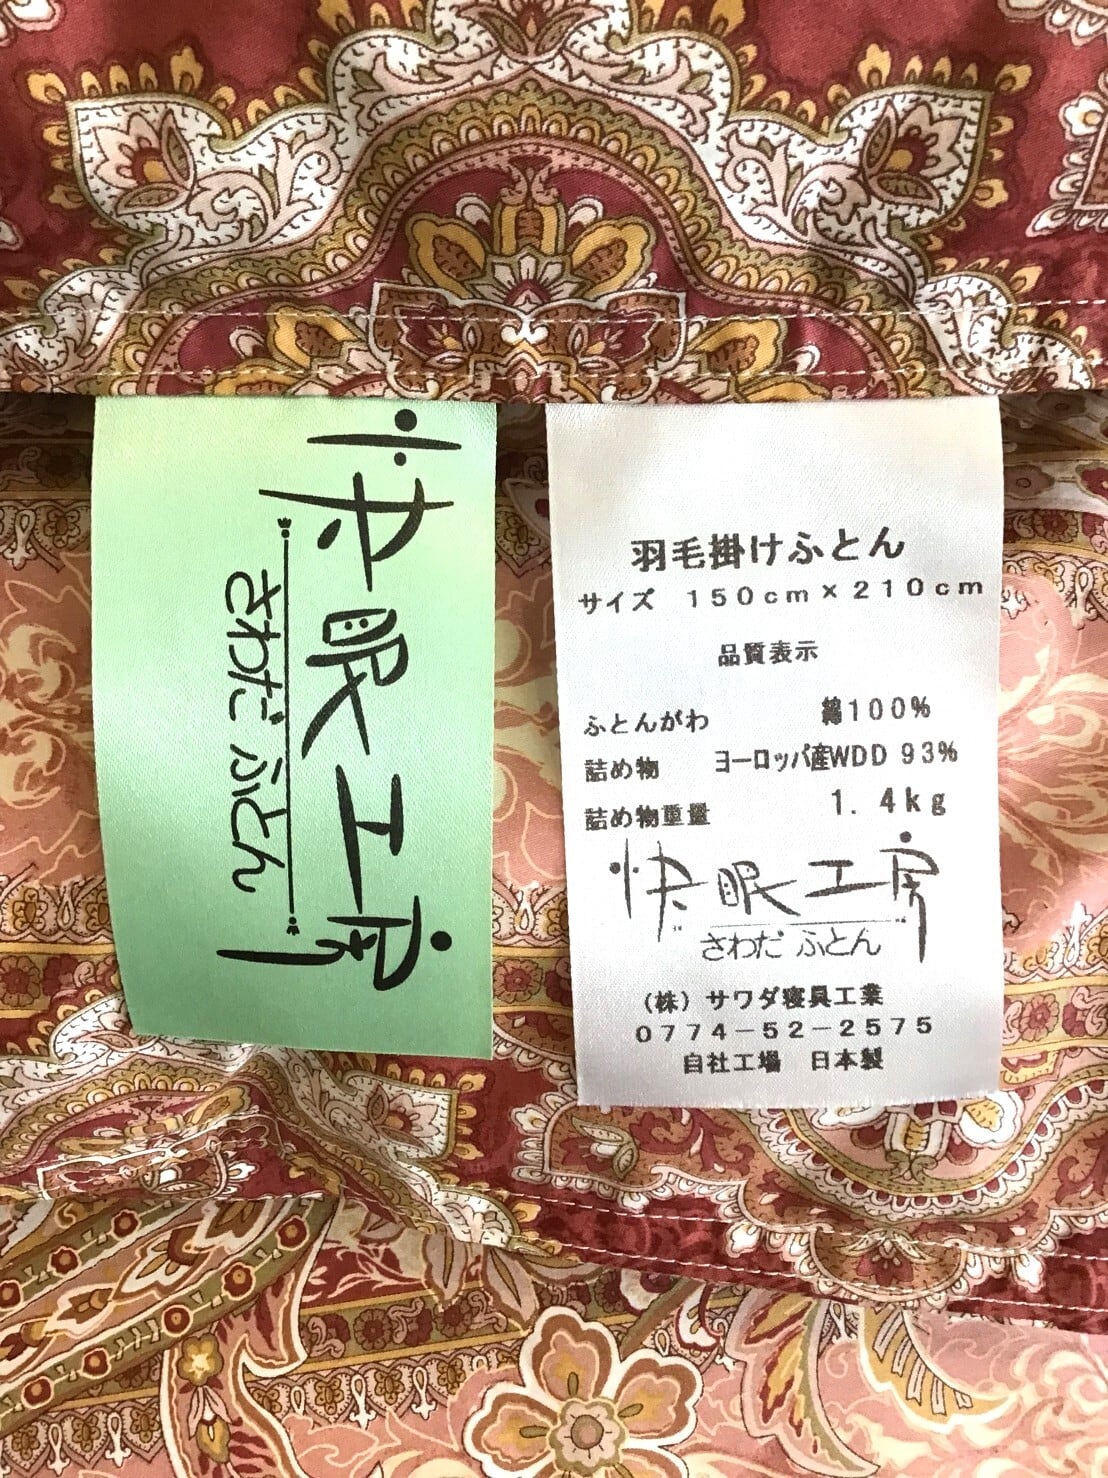 快眠工房
さわだふとん
羽毛掛けふとん
サイズ 150cm×210cm
品質表示
ふとんがわ 綿100%
詰め物 ヨーロッパ産WDD 93%
詰め物重量 1.4kg
快眠工房
さわだ ふとん
(株)サワダ寝具工業
0774-52-2575
自社工場 日本製